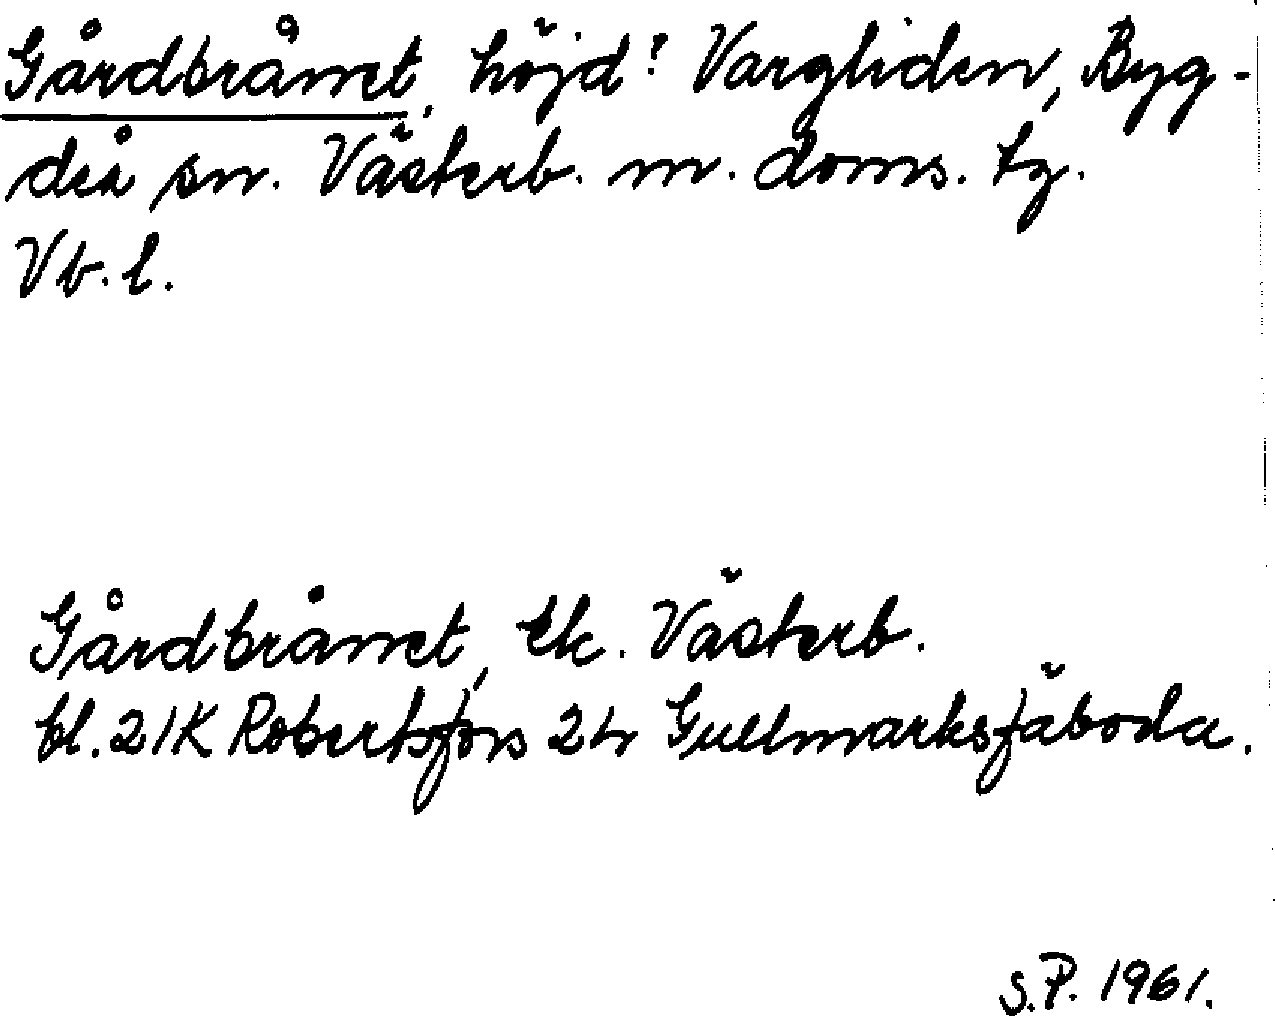 Gårdbrånet, höjd: Vargliden, Byg-
deå sn. Västerb. m. doms. tg.
Vb. l.
Gårdbrånet, Ek. Västerb.
bl. 21K Robertsfors 2h Gullmarksfäboda.
S.P. 1961.